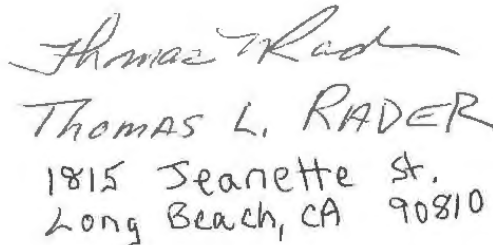 Thomas L Rader
THOMAS L. RADER
1815 Jeanette St.
Long Beach, CA 90810